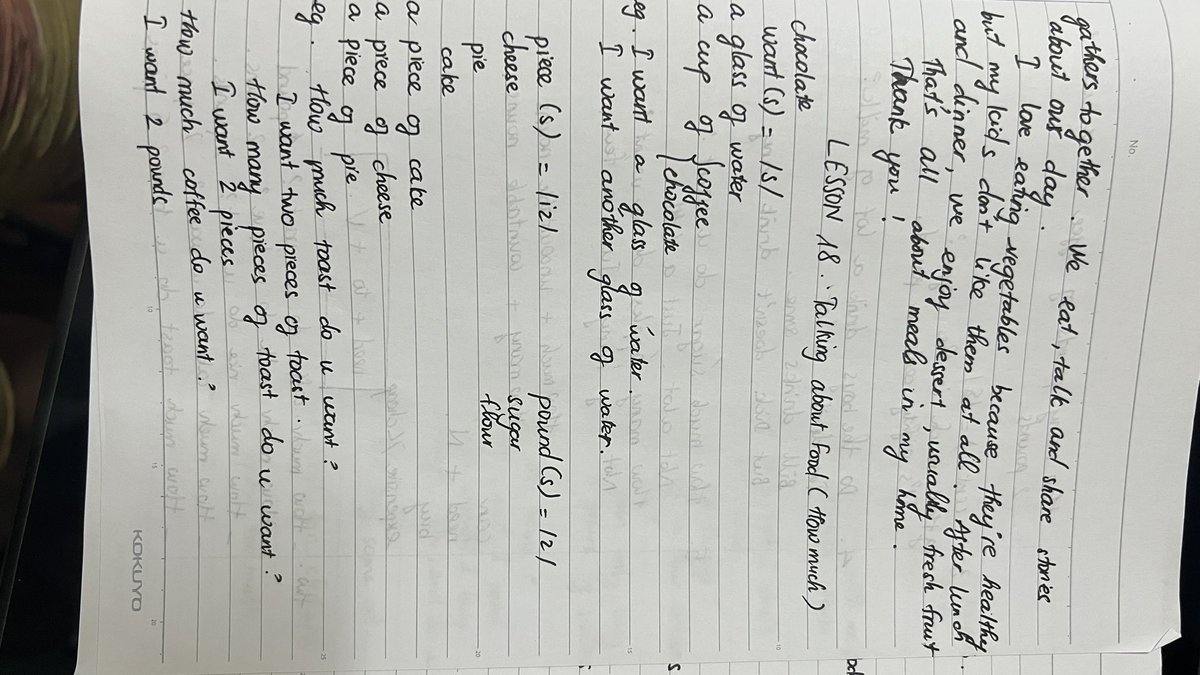 No.
gathers together. We eat, talk and share stories
about our day.
I love eating vegetables because they're healthy
but my kids don't like them at all. After lunch
and dinner, we enjoy dessert, usually fresh fruit.
That's all about meals in my home.
Thank you!
LESSON 18. Talking about Food (How much)
chocolate
want (s) = /s/
a glass of water
a cup of { coffee
{ chocolate
eg. I want a glass of water.
I want another glass of water.
piece (s) = /iz/ pound (s) = /z/
cheese sugar
pie flour
cake
a piece of cake
a piece of cheese
a piece of pie
eg. How much toast do u want?
I want two pieces of toast.
How many pieces of toast do u want?
I want 2 pieces
How much coffee do u want?
I want 2 pounds
KOKUYO